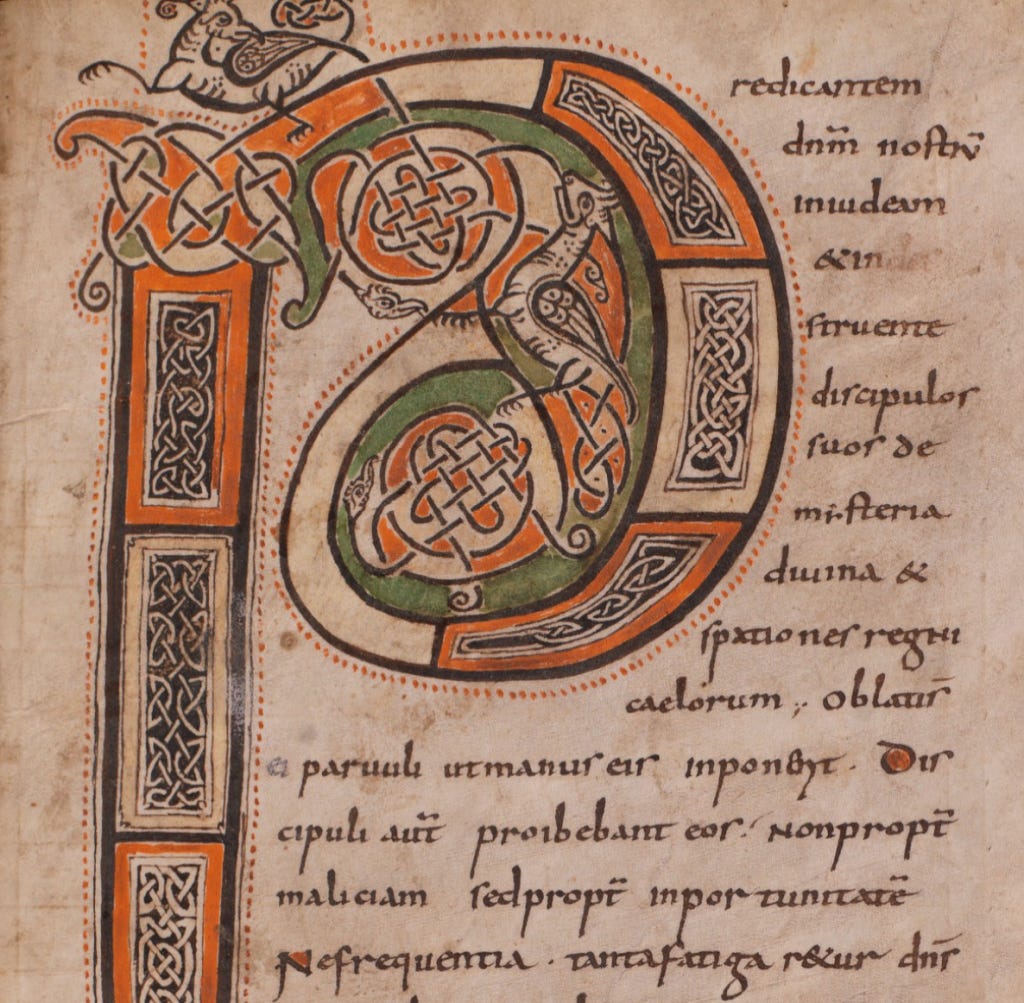 Predicantem
dnm̄ nostrū
iniudeam
&inde
struente
discipulos
suos de
misteria
diuina &
spationes regni
caelorum ; Oblatis
ei paruuli utmanus eis inponeret . Dis
cipuli aut̄ proibebant eos . Nonpropt̄
maliciam sedpropt̄ inportunitatē
Nefrequentia . tantafatiga r&ur dn̄s